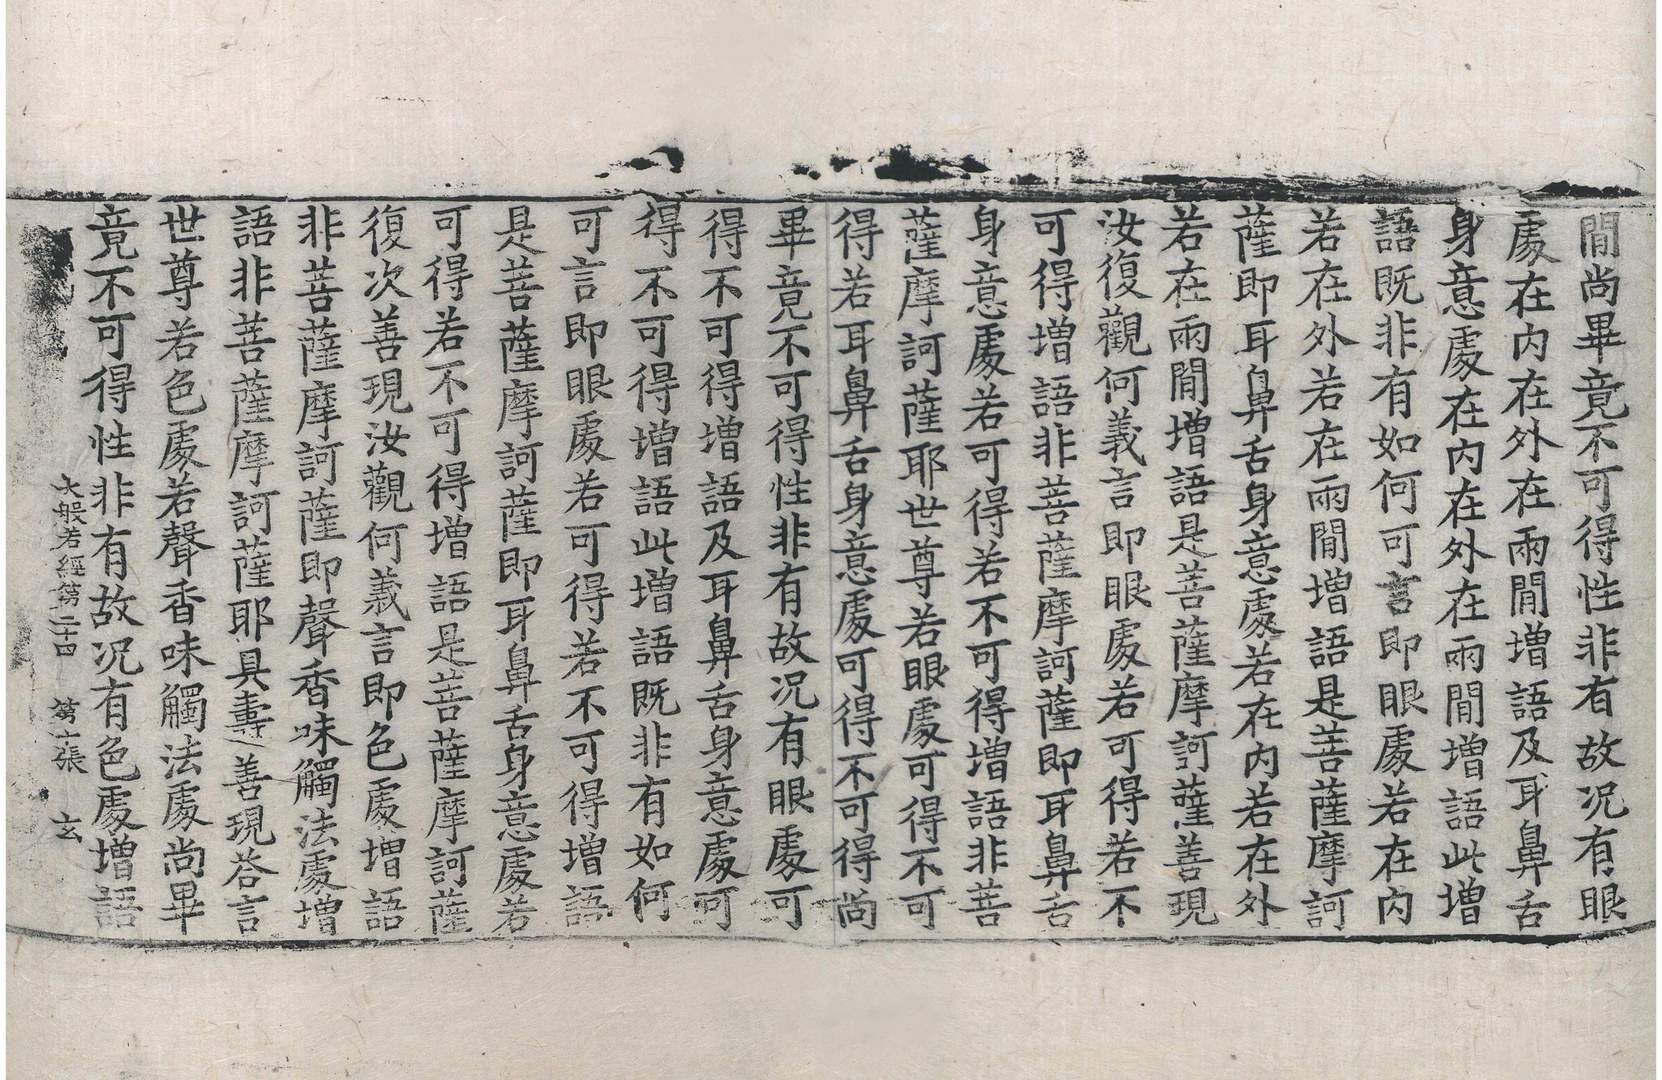 間尚畢竟不可得性非有故况有眼
處在内在外在兩間增語及耳鼻舌
身意處在内在外在兩間增語此增
語既非有如何可言即眼處若在内
若在外若在兩間增語是菩薩摩訶
薩即耳鼻舌身意處若在内若在外
若在兩間增語是菩薩摩訶薩善現
汝復觀何義言即眼處若可得若不
可得增語非菩薩摩訶薩即耳鼻舌
身意處若可得若不可得增語非菩
薩摩訶薩耶世尊若眼處可得不可
得若耳鼻舌身意處可得不可得尚
畢竟不可得性非有故况有眼處可
得不可得增語及耳鼻舌身意處可
得不可得增語此增語既非有如何
可言即眼處若可得若不可得增語
是菩薩摩訶薩即耳鼻舌身意處若
可得若不可得增語是菩薩摩訶薩
復次善現汝觀何義言即色處增語
非菩薩摩訶薩即聲香味觸法處增
語非菩薩摩訶薩耶具壽善現荅言
世尊若色處若聲香味觸法處尚畢
竟不可得性非有故况有色處增語
大般若經第二十四 第張 玄